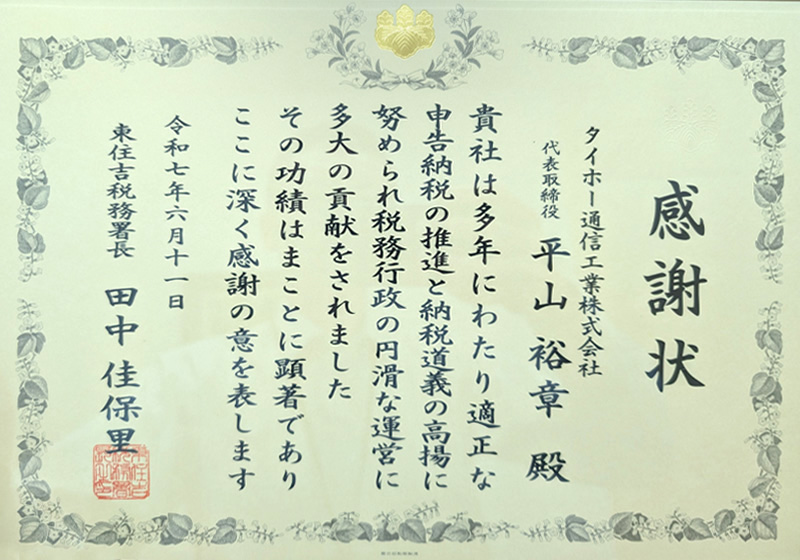 感謝状
タイホー通信工業株式会社
代表取締役 平山 裕章 殿
貴社は多年にわたり適正な
申告納税の推進と納税道義の高揚に
努められ税務行政の円滑な運営に
多大の貢献をされました
その功績はまことに顕著であり
ここに深く感謝の意を表します
令和七年六月十一日
東住吉税務署長 田中 佳保里